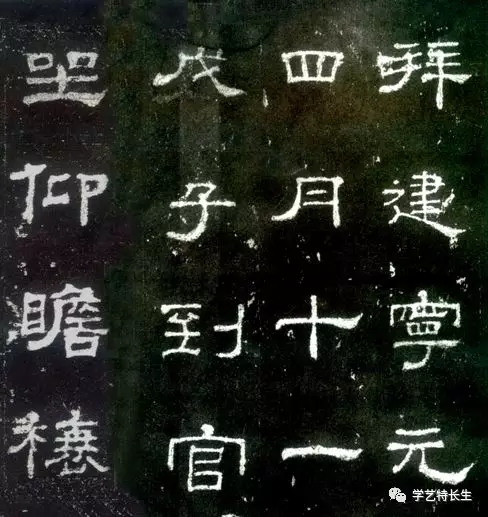 拜建寧元
四月十一
戊子到官
坐仰瞻榱
学艺特长生